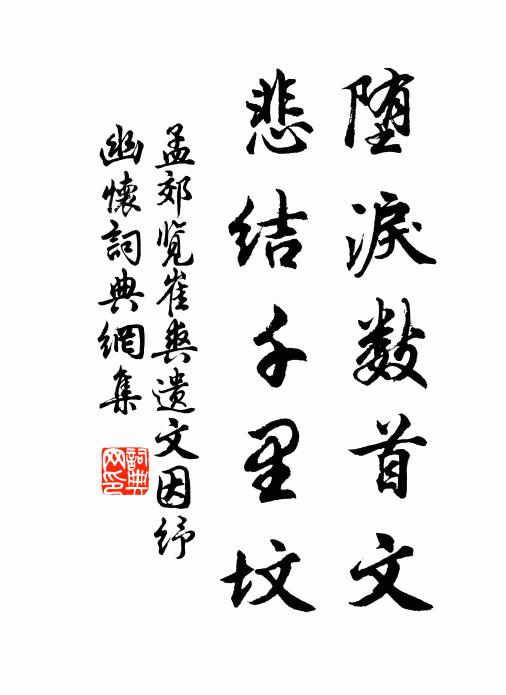 堕淚数首文
悲结千里坟
孟郊览崔爽遗文因纾
幽懷詞典網集
詞典网印